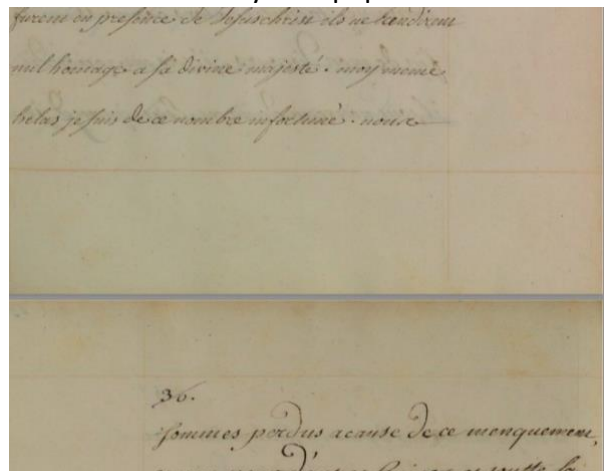 furent en presence de Jesuschrist ils ne randirent
nul homage a sa divine majesté. moy meme
helas je suis de ce nombre infortuné. nous
36.
sommes perdus acause de ce menquement,